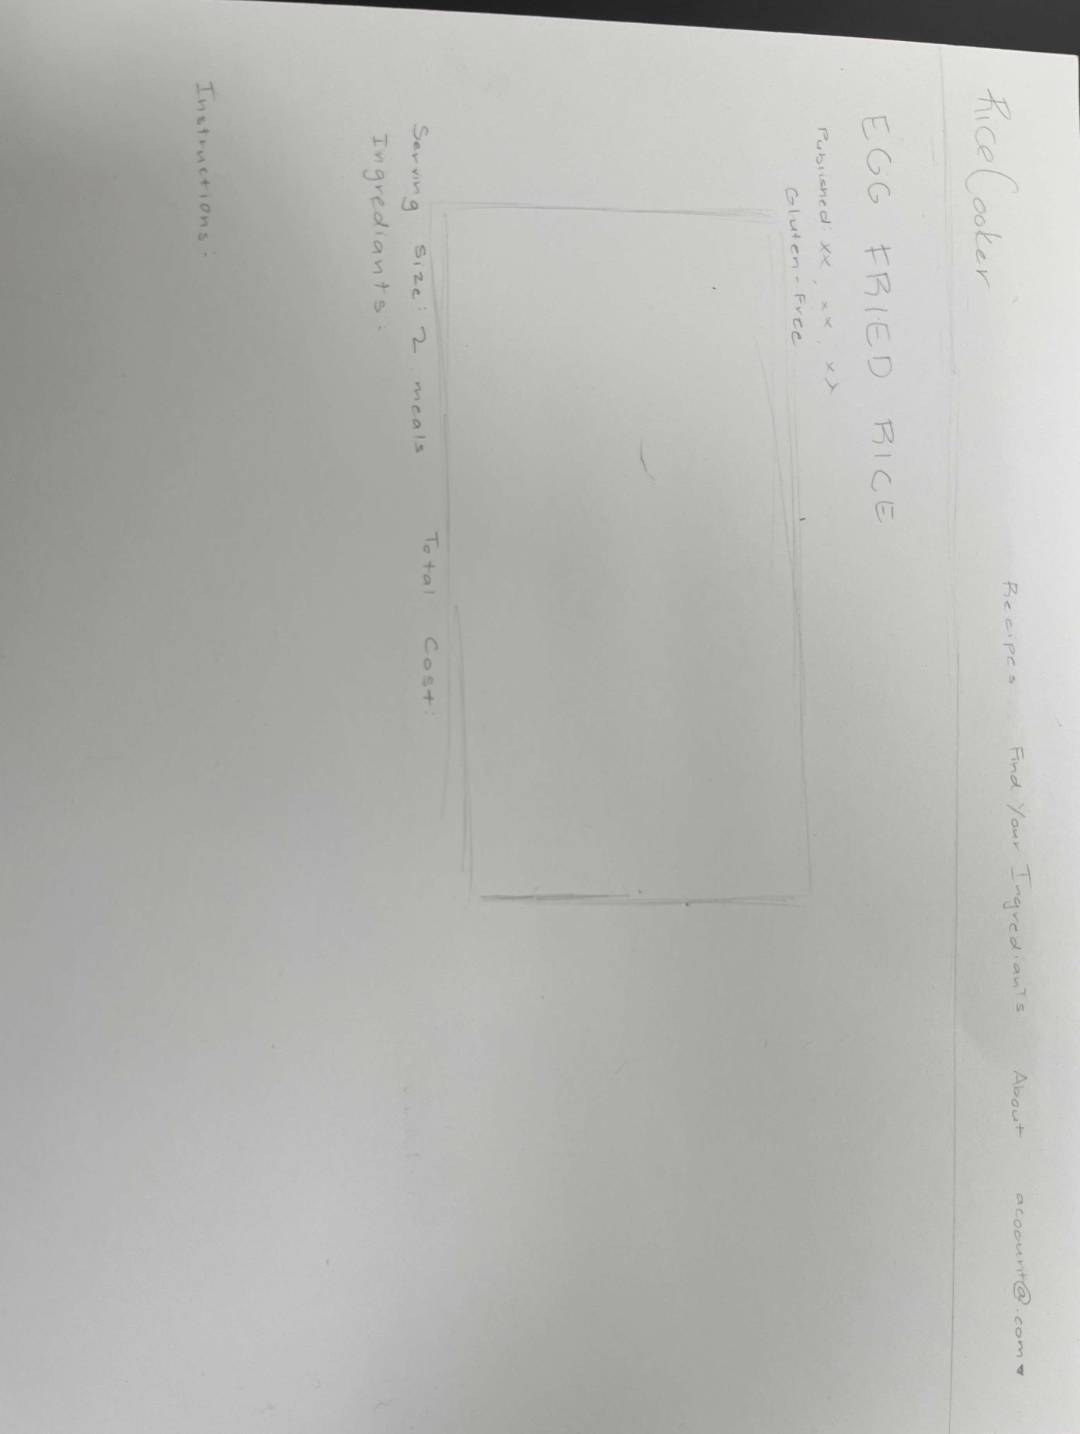 RiceCooker
Recipes Find Your Ingrediants About acoount@.com ▾
EGG FRIED RICE
Published: xx, xx, xx
Gluten-Free
Serving size: 2 meals Total Cost:
Ingrediants:
Instructions: